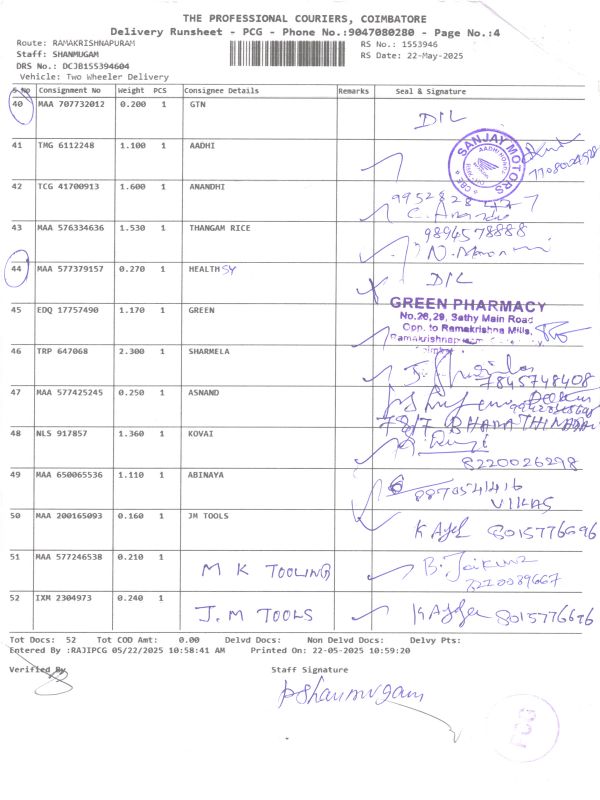 THE PROFESSIONAL COURIERS, COIMBATORE
Delivery Runsheet - PCG - Phone No.:9047080280 - Page No.:4
Route: RAMAKRISHNAPURAM RS No.: 1553946
Staff: SHANMUGAM RS Date: 22-May-2025
DRS No.: DCJB155394604
Vehicle: Two Wheeler Delivery
S.No Consignment No Weight PCS Consignee Details Remarks Seal & Signature
40 MAA 707732012 0.200 1 GTN D/L
41 TMG 6112248 1.100 1 AADHI
SANJAY MOTORS
CBE
42 TCG 41700913 1.600 1 ANANDHI
C. Anandhi
43 MAA 576334636 1.530 1 THANGAM RICE 9894578888
44 MAA 577379157 0.270 1 HEALTHSY D/L
45 EDQ 17757490 1.170 1 GREEN
GREEN PHARMACY
No.26,29, Sathy Main Road
Opp. to Ramakrishna Mills,
46 TRP 647068 2.300 1 SHARMELA
7845748408
47 MAA 577425245 0.250 1 ASNAND
48 NLS 917857 1.360 1 KOVAI
8220026298
49 MAA 650065536 1.110 1 ABINAYA
8870541416
VIKAS
50 MAA 200165093 0.160 1 JM TOOLS 8015776696
51 MAA 577246538 0.210 1 M K TOOLING
52 IXM 2304973 0.240 1 J.M TOOLS 8015776696
Tot Docs: 52 Tot COD Amt: 0.00 Delvd Docs: Non Delvd Docs: Delvy Pts:
Entered By :RAJIPCG 05/22/2025 10:58:41 AM Printed On: 22-05-2025 10:59:20
Verified By Staff Signature
PShanmugam
PCG